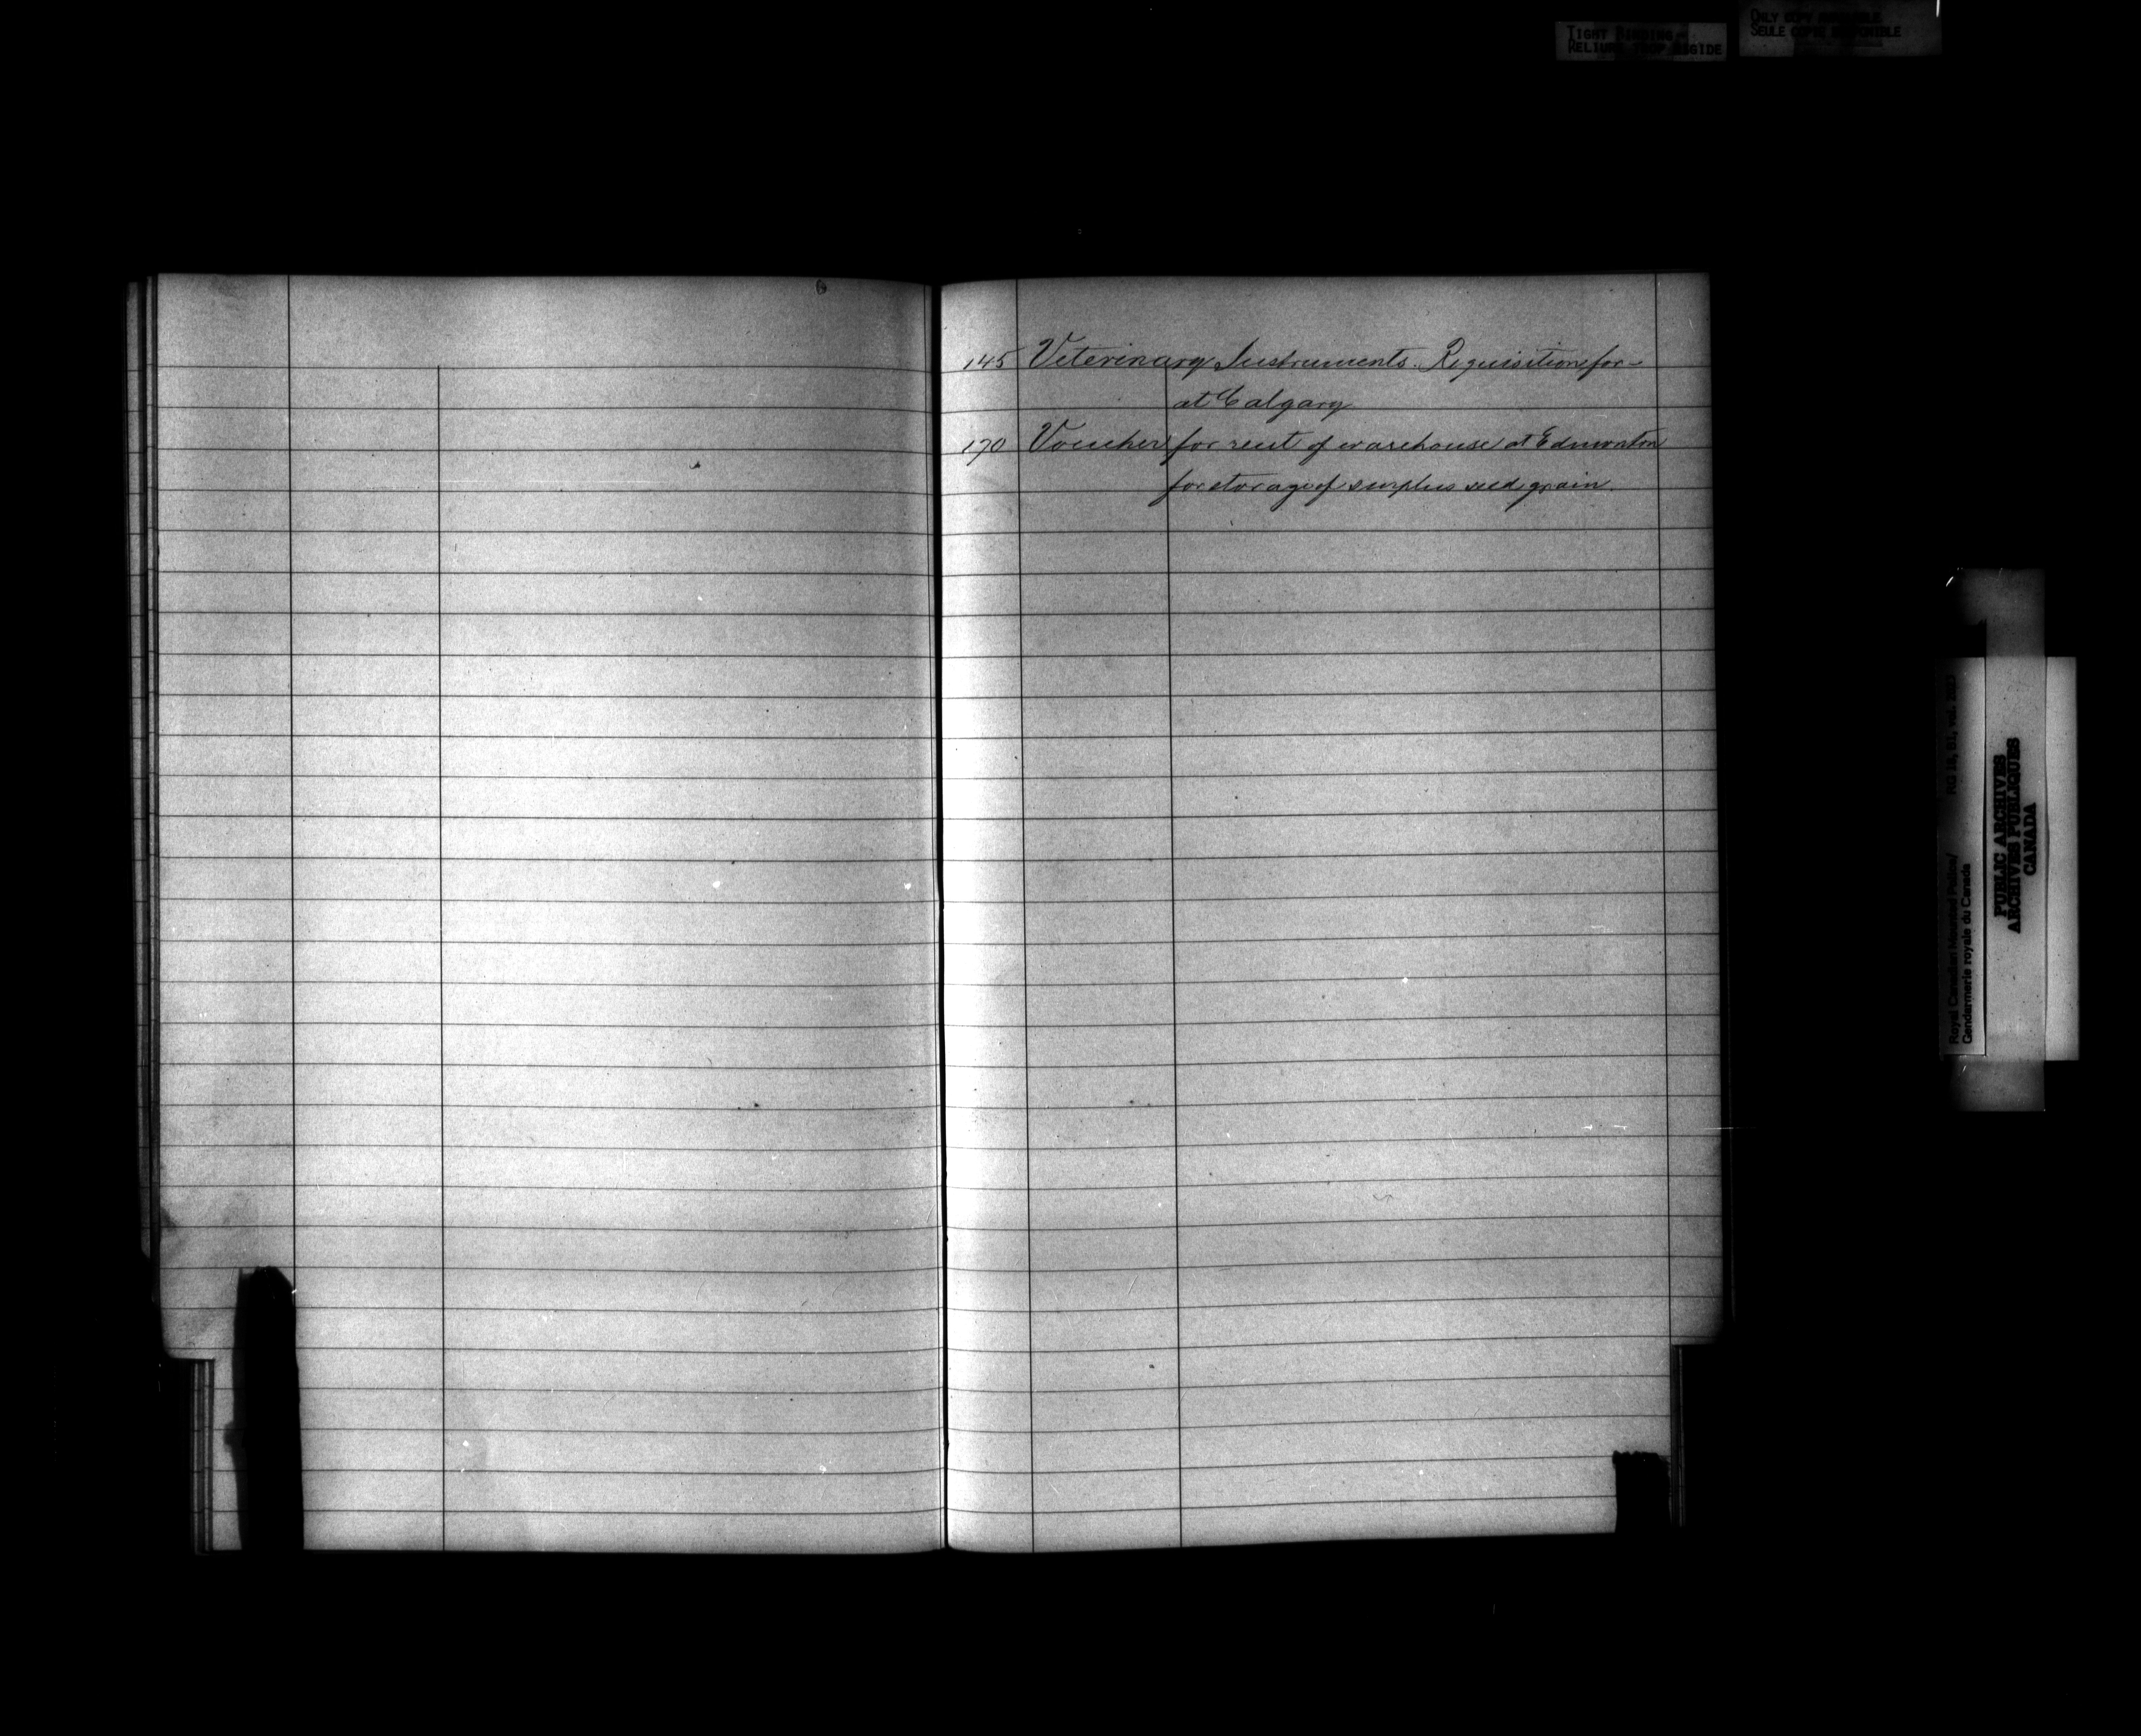 TIGHT BINDING -
RELIURE TROP RIGIDE
ONLY COPY AVAILABLE
SEULE COPIE DISPONIBLE
6
145 Veterinary Instruments. Requisition for -
at Calgary
170 Voucher for rent of warehouse at Edmonton
for storage of surplus seed grain.
Royal Canadian Mounted Police/
Gendarmerie royale du Canada
PUBLIC ARCHIVES
ARCHIVES PUBLIQUES
CANADA